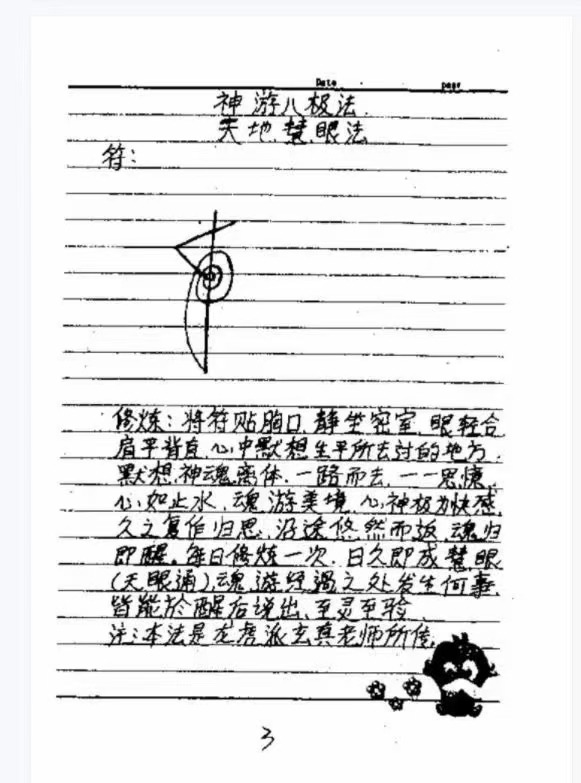 Date
page
神游八极法
天地慧眼法
符:
修炼:将符贴胸口,静坐密室,眼轻合,
肩平背直,心中默想生平所去过的地方,
默想神魂离体,一路而去,一一思憶,
心如止水,魂游美境,心神极为快感,
久之复作归思,沿途悠然而返,魂归
即醒。每日修炼一次,日久即成慧眼
(天眼通),魂游经过之处发生何事,
皆能於醒后说出,至灵至验。
注:本法是龙虎派玄真老师所传
3